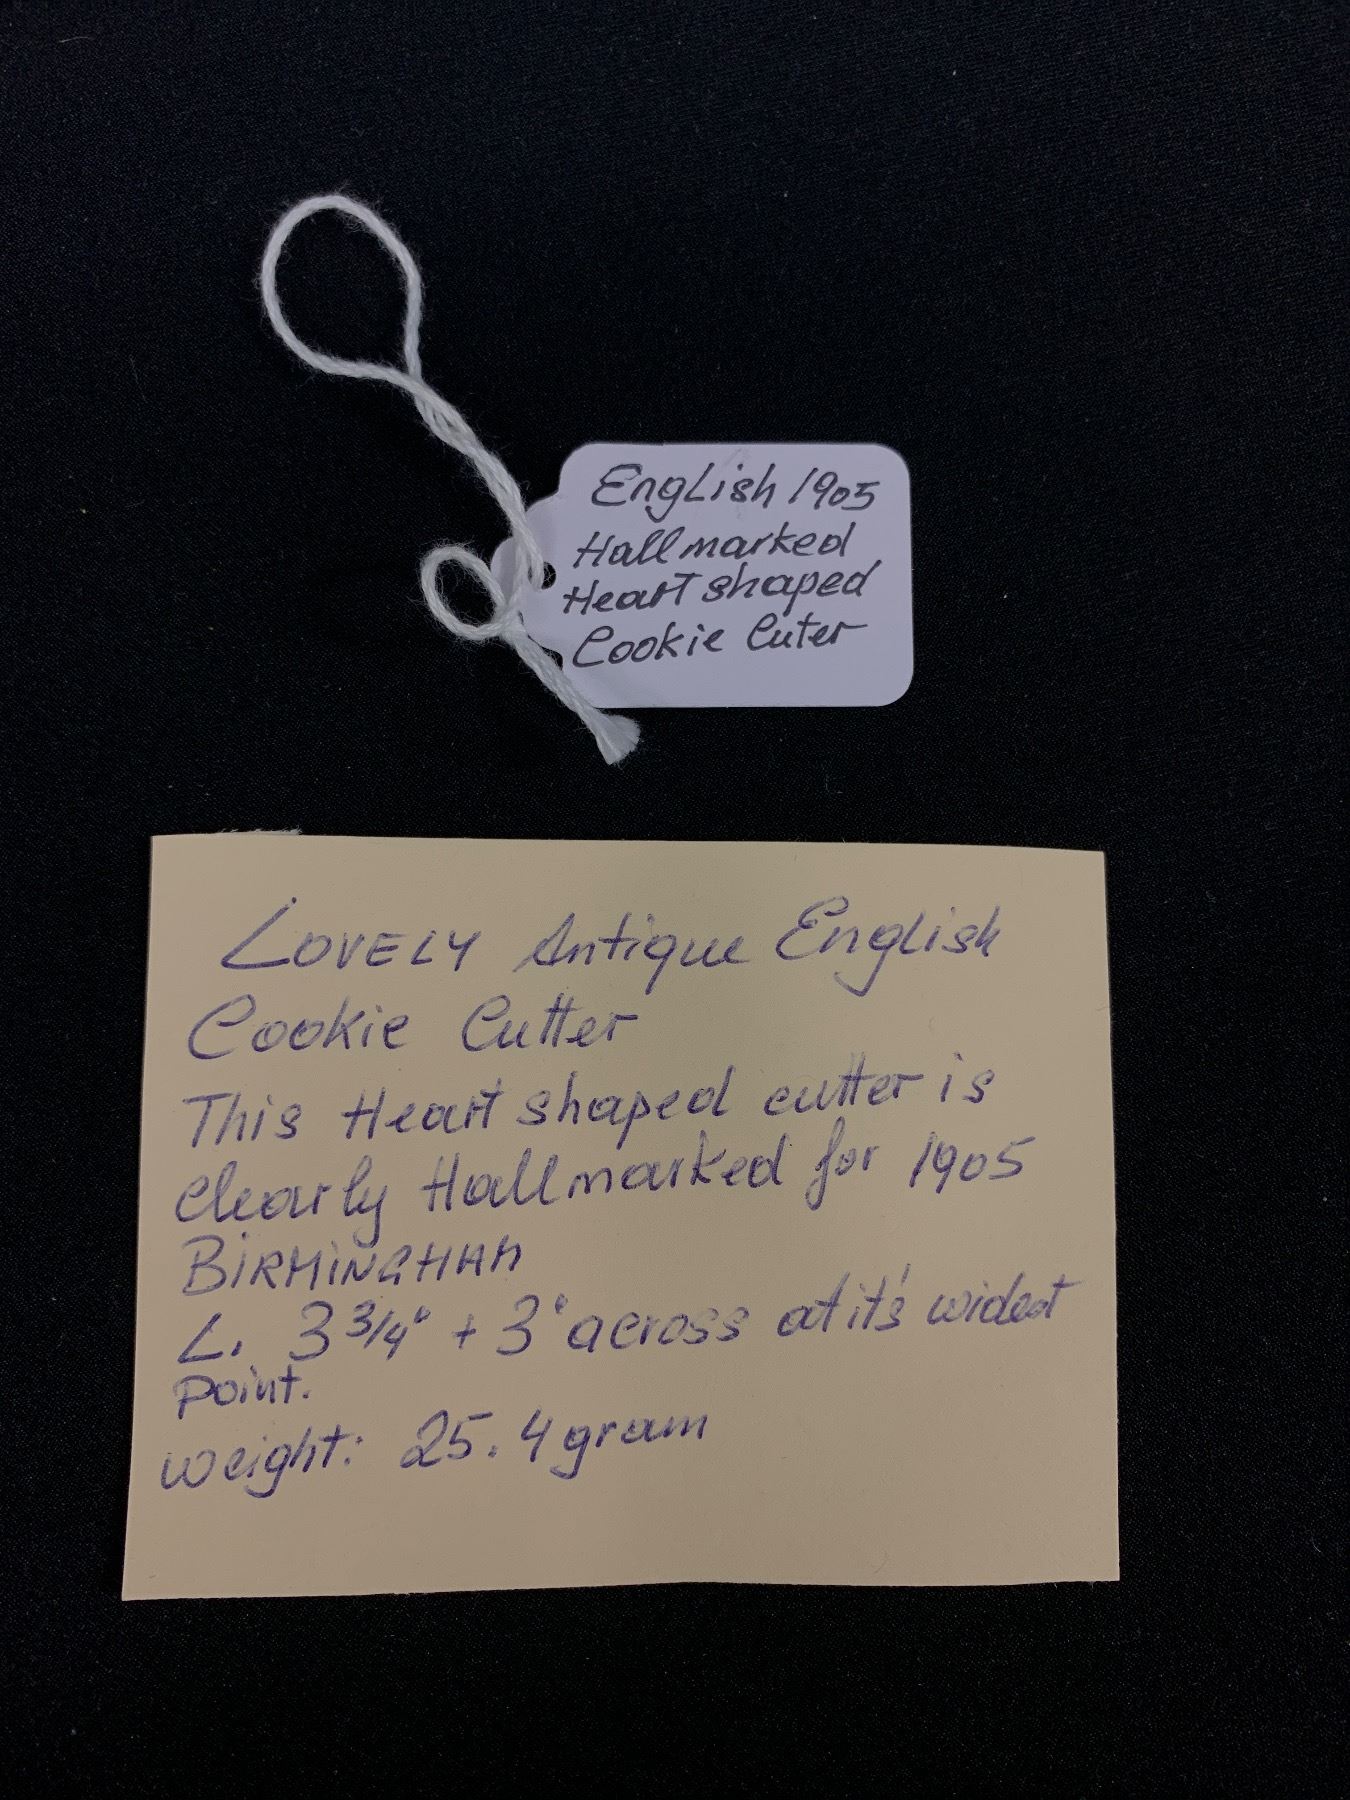 English 1905
Hallmarked
Heart shaped
Cookie Cuter
LOVELY Antique English
Cookie Cutter
This Heart shaped cutter is
Clearly Hallmarked for 1905
BIRMINGHAM
L. 3 3/4" + 3" across at it's widest
Point.
weight: 25.4 gram